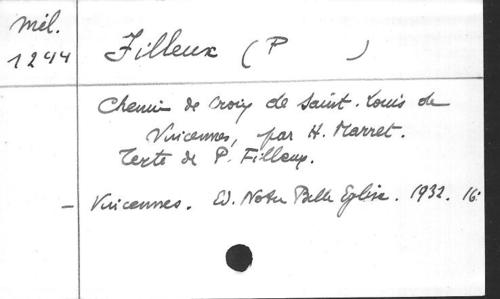 Mél.
1244
Filleux (P )
Chemin de Croix de Saint-Louis de
Vincennes, par H. Marret.
Texte de P. Filleux.
– Vincennes. Ed. Notre Belle Eglise. 1932. 16°